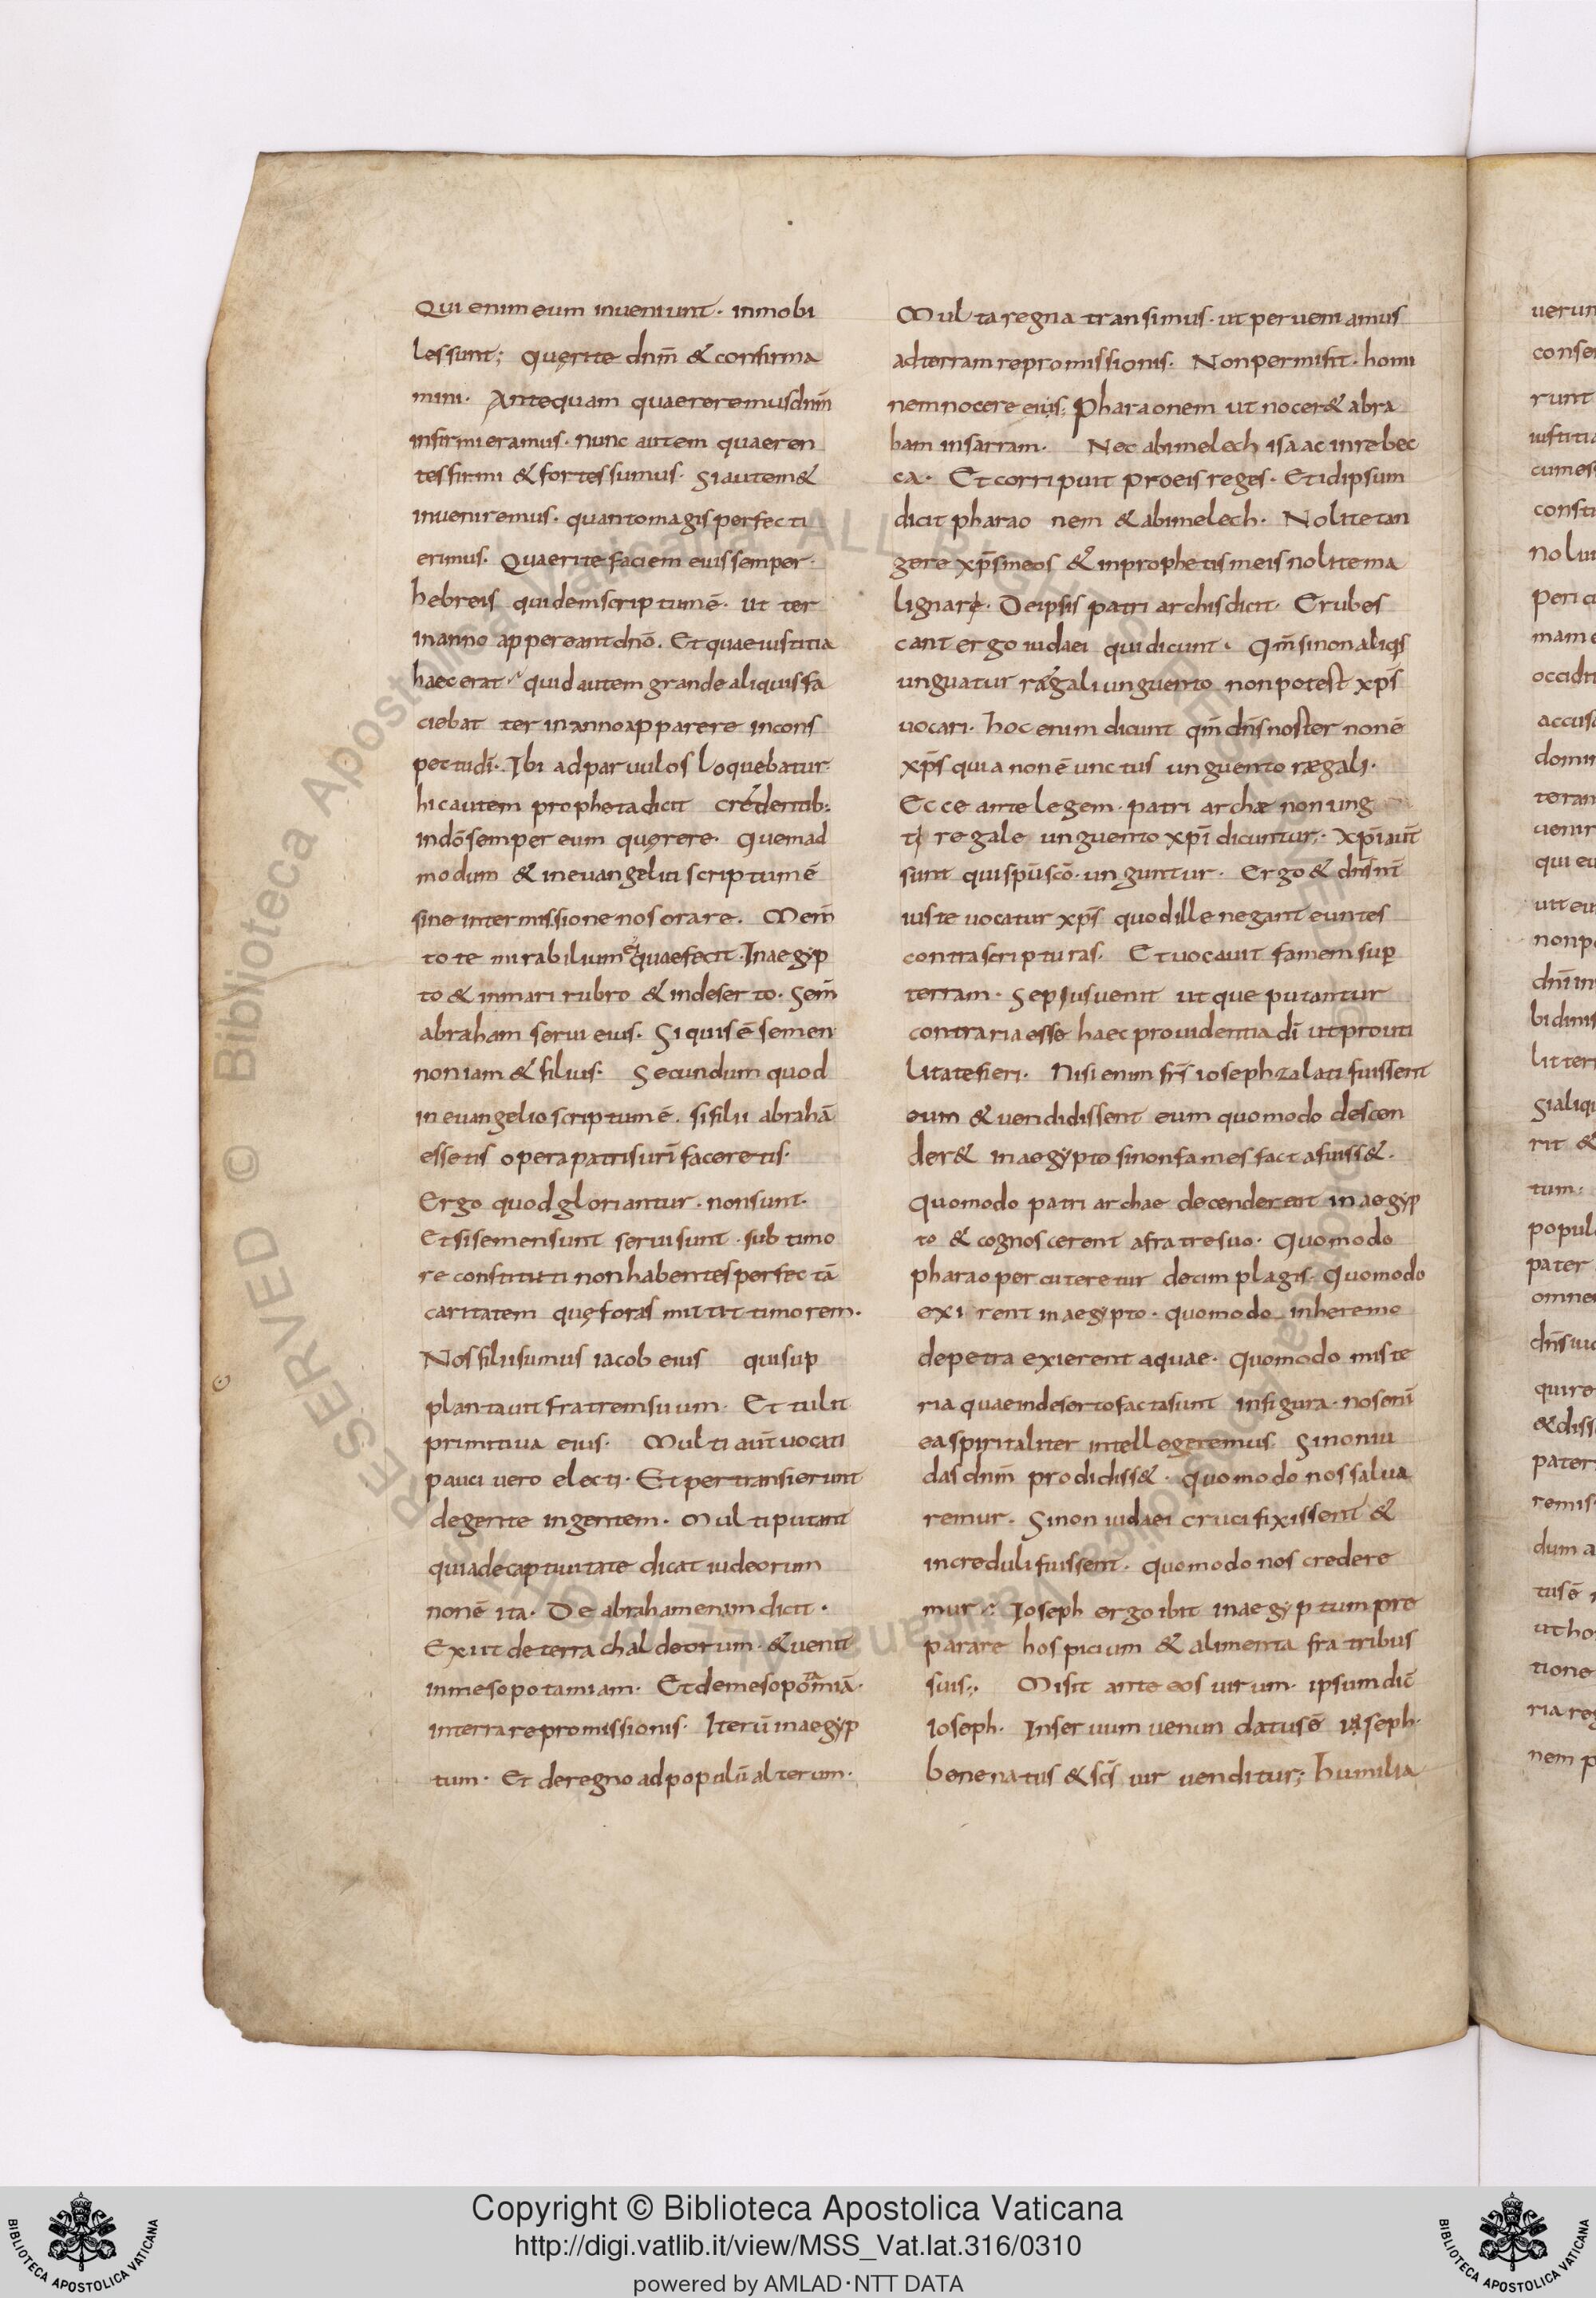 Qui enim eum inueniunt · inmobi
les sunt; Quęrite dnm̄ & confirma
mini · Antequam quaereremus dnm̄
infirmi eramus · nunc autem quaeren
tes firmi & fortes sumus · Si autem &
inueniremus · quanto magis perfecti
erimus · Quaerite faciem eius semper ·
hebreis quidem scriptum ē · ut ter
in anno appereant dnō. Et quae iustitia
haec erat · quid autem grande aliquis fa
ciebat ter in anno apparere in cons
pectu dī · Ibi ad paruulos loquebatur ·
hic autem propheta dicit credentib:
in dō semper eum quęrere · Quemad
modum & in euangelii scriptum ē
sine intermissione nos orare. Mem̄
tote mirabilium ei quae fecit · In aegyp
to & in mari rubro & in deserto · Sem̄
abraham serui eius · Si quis ē semen
non iam & filius · Secundum quod
in euangelio scriptum ē · si filii abrahā
essetis opera patris urī faceretis ·
Ergo quod gloriantur · non sunt ·
Et si semen sunt serui sunt · sub timo
re constituti non habentes perfectā
caritatem quę foras mittit timorem ·
Nos filii sumus iacob eius qui sup
plantauit fratrem suum · Et tulit
primitiua eius · Multi aut̄ uocati
pauci uero electi · Et pertransierunt
de gente in gentem · Multi putant
quia de captiuitate dicat iudeorum
non ē ita · De abraham enim dicit ·
Exiit de terra chaldeorum · & uenit
in mesopotamiam · Et de mesopotamiā ·
in terra repromissionis · Iterū in aegyp
tum · Et de regno ad populū alterum ·
Multa regna transimus · ut perueniamus
ad terram repromissionis · Non permisit · homi
nem nocere eius; Pharaonem ut nocer& abra
ham in sarram · Nec abimelech isaac in rebec
ca · Et corripuit pro eis reges · Et id ipsum
dicit pharaonem & abimelech · Nolite tan
gere xp̄s meos & in prophetis meis nolite ma
lignare · De ipsis patriarchis dicit · Erubes
cant ergo iudaei qui dicunt · Qm̄ si non aliqs
unguatur rægali unguento non potest xp̄s
uocari · hoc enim dicunt qm̄ dn̄s noster non ē
xp̄s quia non ē unctus unguento rægali ·
Ecce ante legem · patriarchæ non ung
ti regale unguento xp̄i dicuntur · Xp̄i aut̄
sunt qui sp̄u scō · unguntur · Ergo & dn̄s nr̄
iuste uocatur xp̄s quod ille negant euntes
contra scripturas · Et uocauit famem sup
terram · Sepius uenit ut que putantur
contraria esse haec prouidentia dī ut pro uti
litate fieri · Nisi enim fr̄s ioseph zalati fuissent
eum & uendidissent eum quomodo descen
der& in aegypto si non fames facta fuiss& ·
Quomodo patriarchae decenderent in aegyp
to & cognoscerent a fratre suo · Quomodo
pharao percuteretur decim plagis · Quomodo
exirent in aegypto · quomodo in heremo
de petra exierent aquae · Quomodo miste
ria quae in deserto facta sunt in figura · nos enī
ea spiritaliter intellegeremus · Si non iu
das dnm̄ prodidiss& · quomodo nos salua
remur · Si non iudaei crucifixissent &
increduli fuissent · Quomodo nos credere
mur · Ioseph ergo ibit in aegyptum pre
parare hospicium & alimenta fratribus
suis · Misit ante eos uirum · ipsum dic̄
Ioseph · In seruum uenundatus ē ioseph ·
bene natus & sc̄s uir uenditur; humilia
Copyright © Biblioteca Apostolica Vaticana
http://digi.vatlib.it/view/MSS_Vat.lat.316/0310
powered by AMLAD·NTT DATA